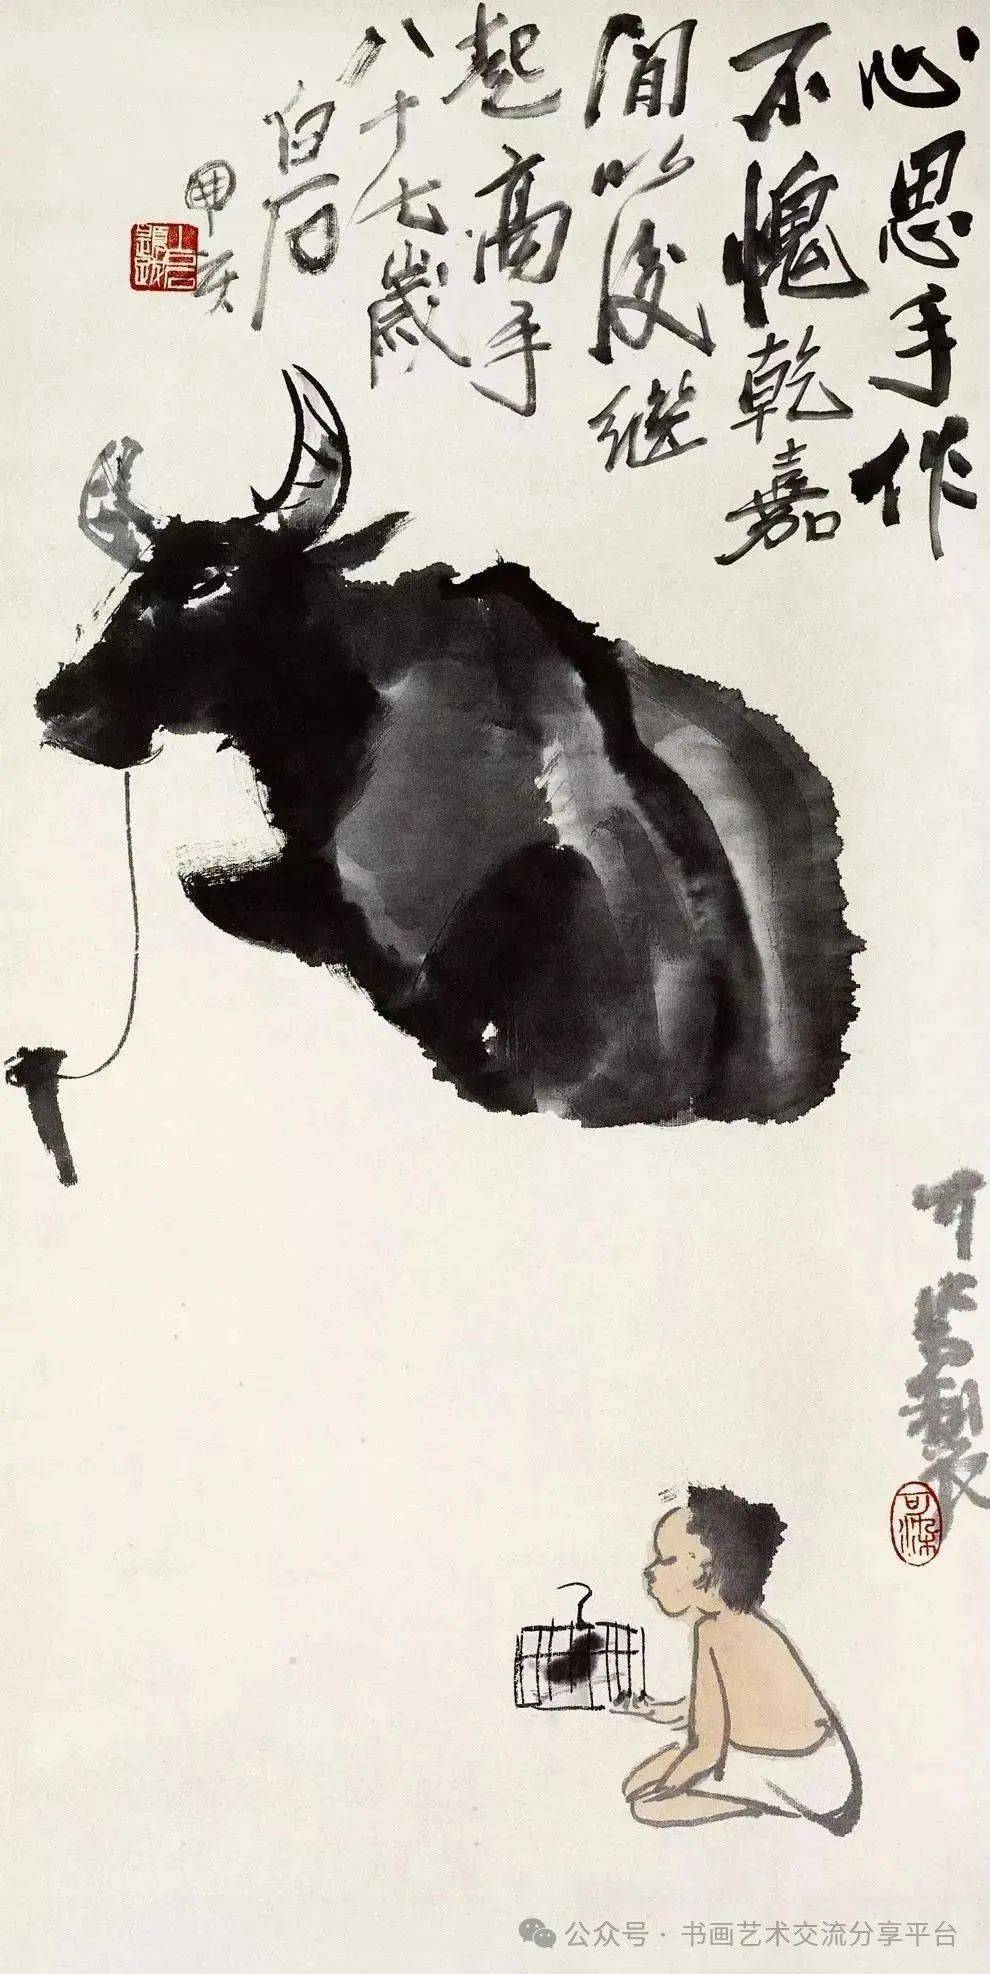 心思手作
不愧乾嘉
间以后继
起高手
八十七岁
白石
甲亥
可染製
可染
公众号·书画艺术交流分享平台